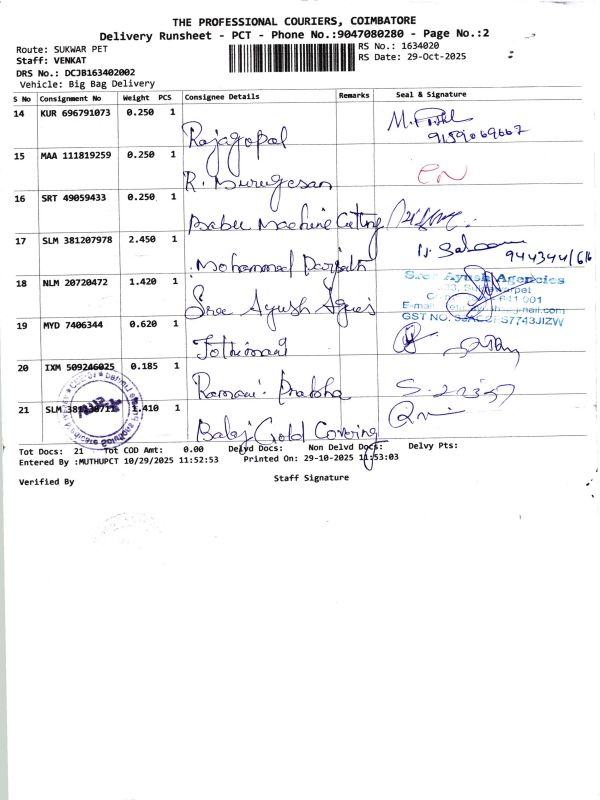 THE PROFESSIONAL COURIERS, COIMBATORE
Delivery Runsheet - PCT - Phone No.:9047080280 - Page No.:2
Route: SUKWAR PET
RS No.: 1634020
Staff: VENKAT
RS Date: 29-Oct-2025
DRS No.: DCJB163402002
Vehicle: Big Bag Delivery
S No Consignment No Weight PCS Consignee Details Remarks Seal & Signature
14 KUR 696791073 0.250 1 Rajagopal
9159069667
15 MAA 111819259 0.250 1 R. Murugesan
16 SRT 49059433 0.250 1 Babu Machine Cutting
17 SLM 381207978 2.450 1 Mohammed
18 NLM 20720472 1.420 1 Sree Ayush
Sree Ayush Agencies
641 001
19 MYD 7406344 0.620 1 Jothimani
20 IXM 509246025 0.185 1 Ramani Prabha
21 SLM 1.410 1 Balaji Gold Covering
Tot Docs: 21 Tot COD Amt: 0.00 Delvd Docs: Non Delvd Docs: Delvy Pts:
Entered By :MUTHUPCT 10/29/2025 11:52:53 Printed On: 29-10-2025 11:53:03
Verified By
Staff Signature